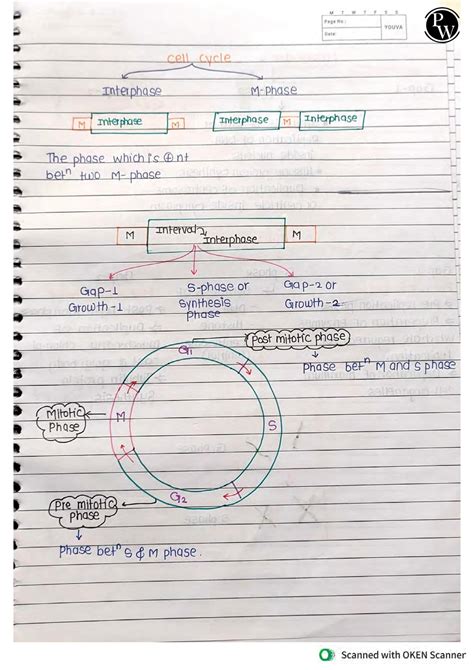 M T W T F S S
Page No.:
Date:
YOUVA
P
W
Cell Cycle
Interphase
M-phase
M Interphase M
Interphase M Interphase
The phase which is ⊕nt
betⁿ two M-phase
M Interval Interphase M
Gap-1
Growth-1
S-phase or
Synthesis
Phase
Gap-2 or
Growth-2
G₁
Post mitotic phase
Phase betⁿ M and S phase
Mitotic
Phase
M
S
G₂
Pre mitotic
phase
Phase betⁿ S & M phase.
Scanned with OKEN Scanner